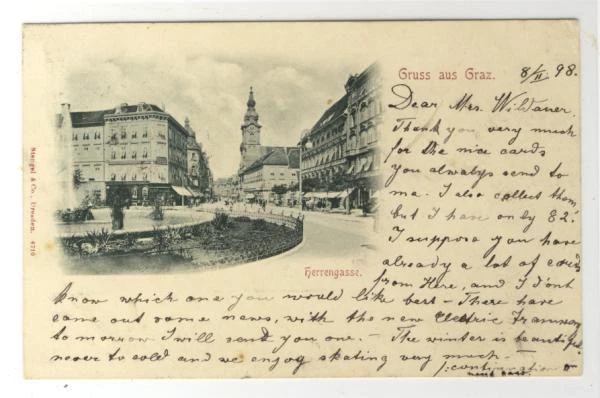 Gruss aus Graz.
8/II 98.
Dear Mrs. Wildauer,
Thank you very much
for the nice cards
you always send to
me. I also collect them
but I have only 82.
I suppose you have
already a lot of cards
from Here, and I don't
know which one you would like best – There have
came out some news, with the new Electric Tramway
to morrow I will send you one. – The winter is beautiful,
never to cold and we enjoy skating very much –
/:continuation on
next card.
Herrengasse.
Stengel & Co., Dresden. 4716